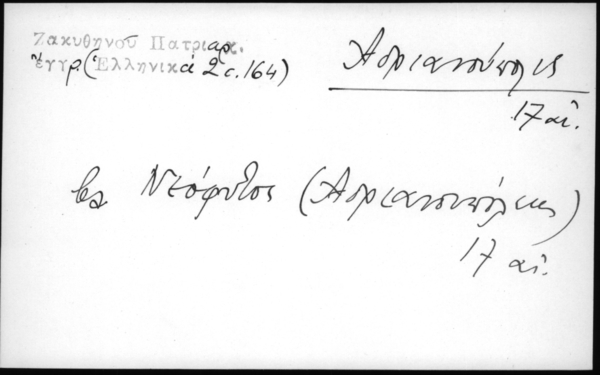 Ζακυθηνοῦ Πατριαρ.
ἔγγρ. (Ἑλληνικά 2 σ. 164)
Ἀδριανούπολις
17 αἰ.
βλ Νεόφυτος (Ἀδριανουπόλεως)
17 αἰ.